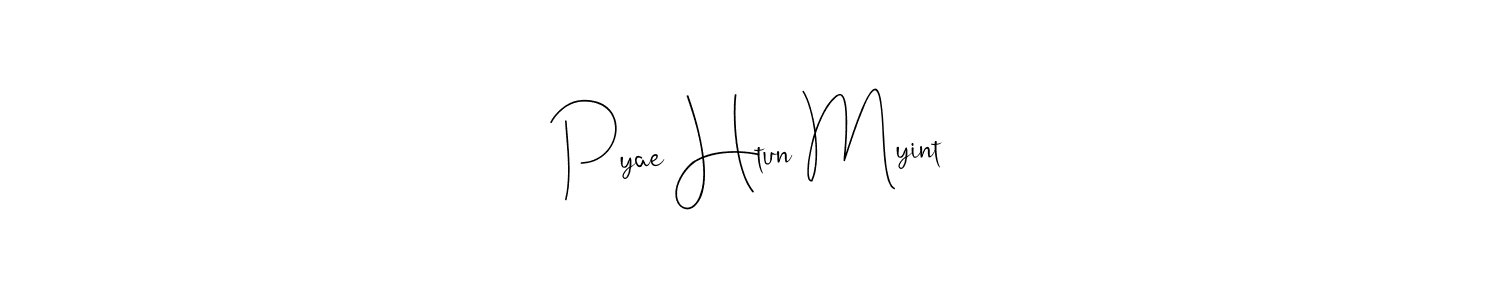 Pyae Htun Myint